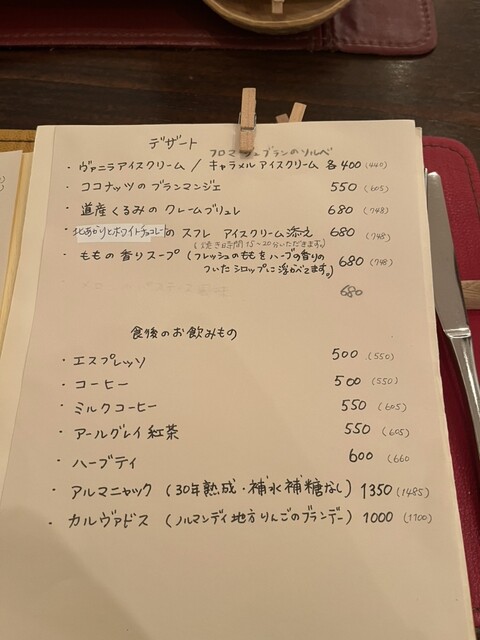 デザート
フロマージュブランのソルベ
・ヴァニラアイスクリーム / キャラメルアイスクリーム 各400 (440)
・ココナッツのブランマンジェ 550 (605)
・道産くるみのクレームブリュレ 680 (748)
・北あかりとホワイトチョコレートの スフレ アイスクリーム添え 680 (748)
(焼き時間15~20分いただきます。)
・ももの香りスープ (フレッシュのももをハーブの香りの 680 (748)
ついたシロップに浮かべてます。)
680
食後のお飲みもの
・エスプレッソ 500 (550)
・コーヒー 500 (550)
・ミルクコーヒー 550 (605)
・アールグレイ紅茶 550 (605)
・ハーブティ 600 (660
・アルマニャック (30年熟成・補水補糖なし) 1350 (1485)
・カルヴァドス (ノルマンディ地方りんごのブランデー) 1000 (1100)